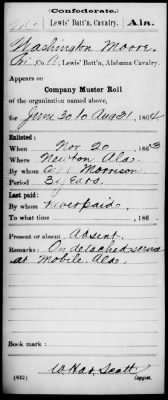 (Confederate.)
M Lewis' Batt'n, Cavalry. Ala.
Washington Moore
Co. Lewis' Batt'n, Alabama Cavalry.
Appears on
Company Muster Roll
of the organization named above,
for June 30 to Aug 31, 1864
Enlisted:
When Nov 20, 1863
Where Newton Ala.
By whom Morrison
Period 3 years
Last paid:
By whom Never paid
To what time , 186 .
Present or absent Absent
Remarks: On detached service
at Mobile Ala.
Book mark:
Scott
(642) Copyist.